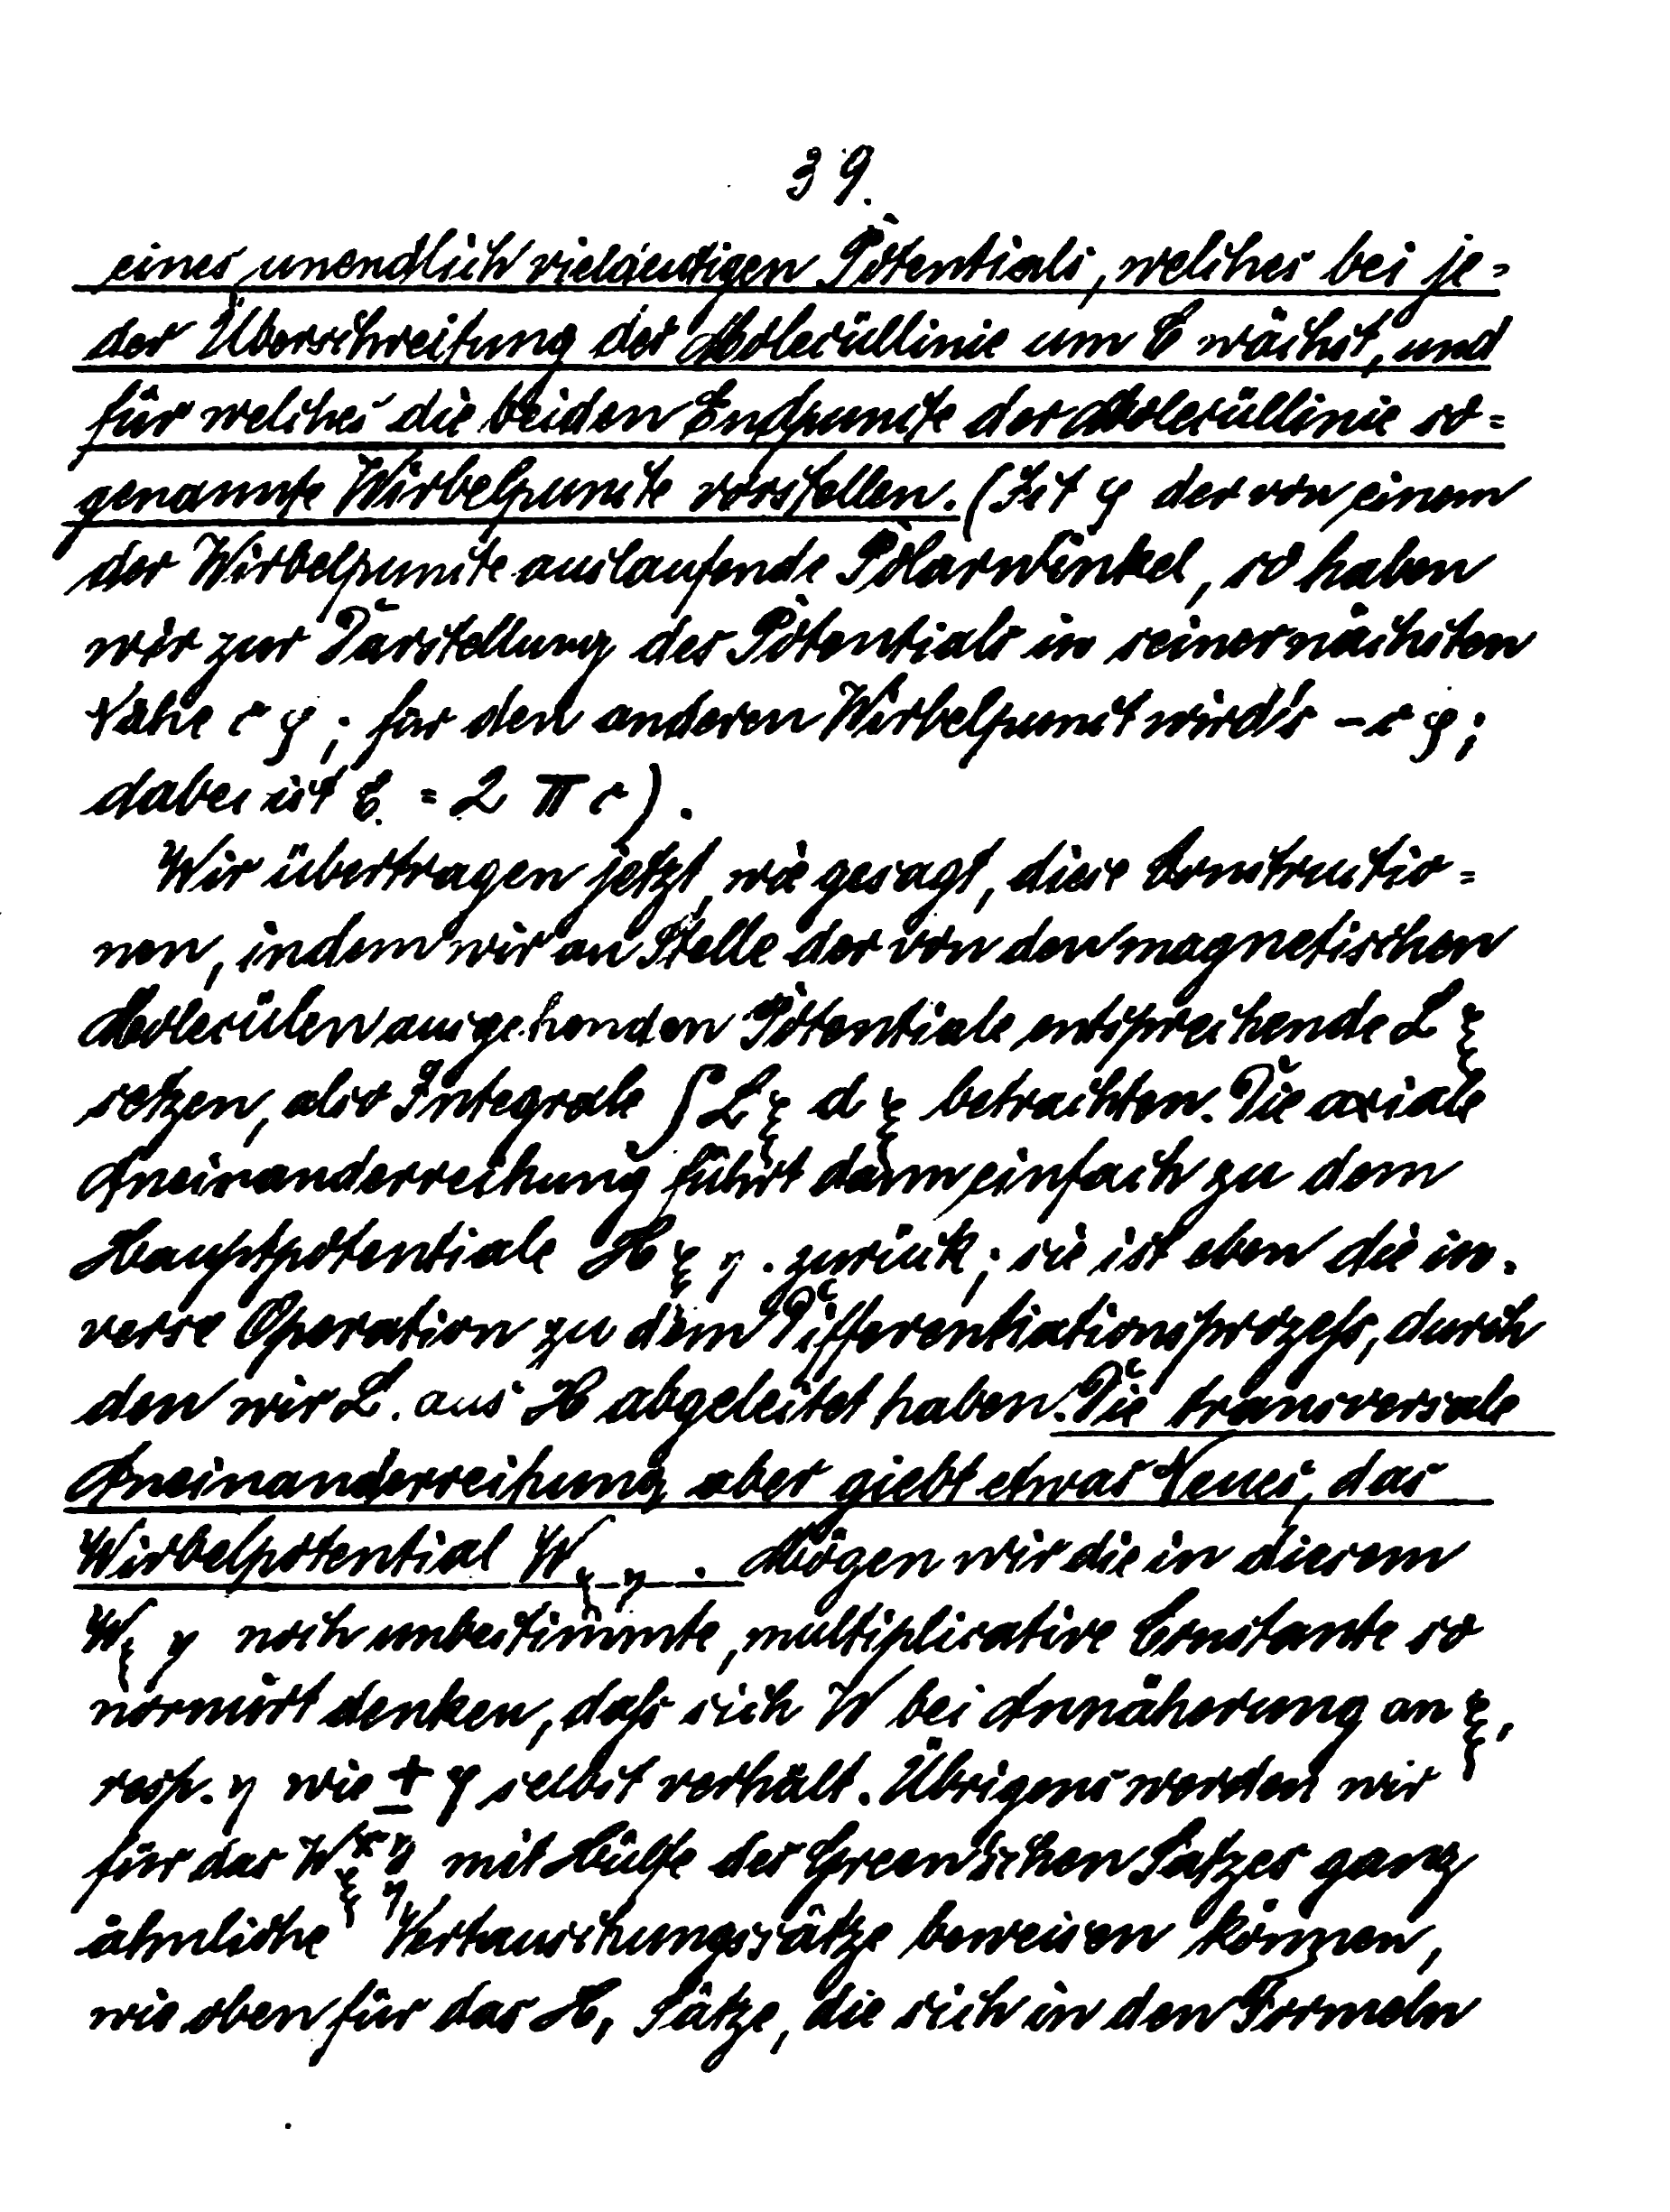 39.
eines unendlich vieldeutigen Potentials, welches bei je-
der Überschreitung der Molecüllinie um C wächst, und
für welches die beiden Endpuncte der Molecüllinie so-
genannte Wirbelpuncte vorstellen. (Ist φ der von einem
der Wirbelpuncte auslaufende Polarwinkel, so haben
wir zur Darstellung des Potentials in seiner nächsten
Nähe c φ; für den anderen Wirbelpunct wird's - c φ;
dabei ist C = 2 π c).
Wir übertragen jetzt, wie gesagt, diese Constructio-
nen, indem wir an Stelle der von den magnetischen
Molecülen ausgehenden Potentiale entsprechende L ξ
setzen, also Integrale ∫ L ξ d ξ betrachten. Die axiale
Aneinanderreihung führt dann einfach zu dem
Hauptpotentiale H ξ η . zurück; sie ist eben die in-
verse Operation zu dem Differentiationsprozeß, durch
den wir L. aus H abgeleitet haben. Die transversale
Aneinanderreihung aber giebt etwas Neues, das
Wirbelpotential W ξ η . Mögen wir die in diesem
W ξ η noch unbestimmte, multiplicative Constante so
normirt denken, daß sich W bei Annäherung an ξ,
resp. η wie ± φ selbst verhält. Übrigens werden wir
für das W x y ξ η mit Hülfe des Green'schen Satzes ganz
ähnliche Vertauschungssätze beweisen können,
wie oben für das H, Sätze, die sich in den Formeln